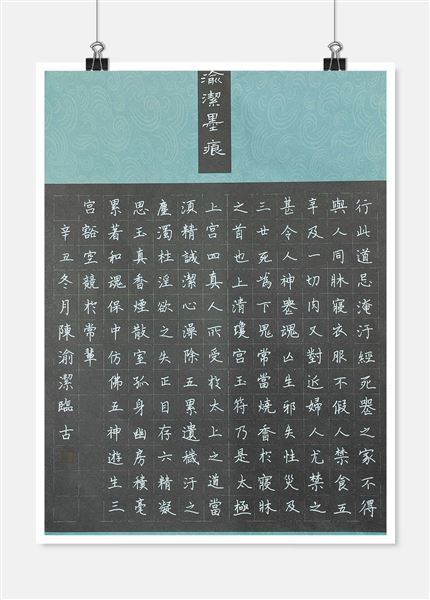 渝潔墨痕
行此道忌淹汙經死喪之家不得
與人同牀寢衣服不假人禁食五
辛及一切肉又對近婦人尤禁之
甚令人神喪魂亡生邪失性災及
三世死為下鬼常當燒香於寢牀
之首也上清瓊宮玉符乃是太極
上宮四真人所受於太上之道當
須精誠潔心澡除五累遺穢汙之
塵濁杜淫欲之失正目存六精凝
思玉真香煙散室孤身幽房積毫
累著和魂保中仿佛五神遊生三
宮豁空競於常輩
辛丑冬月陳渝潔臨古